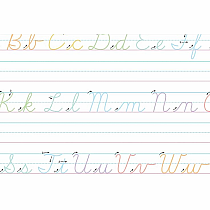 Bb Cc Dd Ee Ff
Kk Ll Mm Nn
Ss Tt Uu Vv Ww